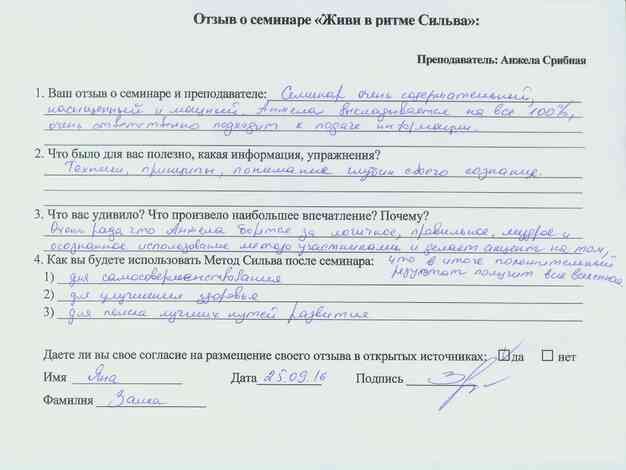 Отзыв о семинаре «Живи в ритме Сильва»:
Преподаватель: Анжела Срибная
1. Ваш отзыв о семинаре и преподавателе: Семинар очень содержательный,
насыщенный и мощный. Анжела выкладывается на все 100%,
очень ответственно подходит к подаче информации.
2. Что было для вас полезно, какая информация, упражнения?
Техники, принципы, понимание глубин своего сознания.
3. Что вас удивило? Что произвело наибольшее впечатление? Почему?
Очень рада что Анжела за логичное, правильное, мудрое и
осознанное использование метода участниками и делает акцент на том,
4. Как вы будете использовать Метод Сильва после семинара: что в итоге положительный
результат получит вся
1) для самосовершенствования
2) для улучшения здоровья
3) для поиска лучших путей развития
Даете ли вы свое согласие на размещение своего отзыва в открытых источниках: да нет
Имя Яна Дата 25.09.16 Подпись
Фамилия